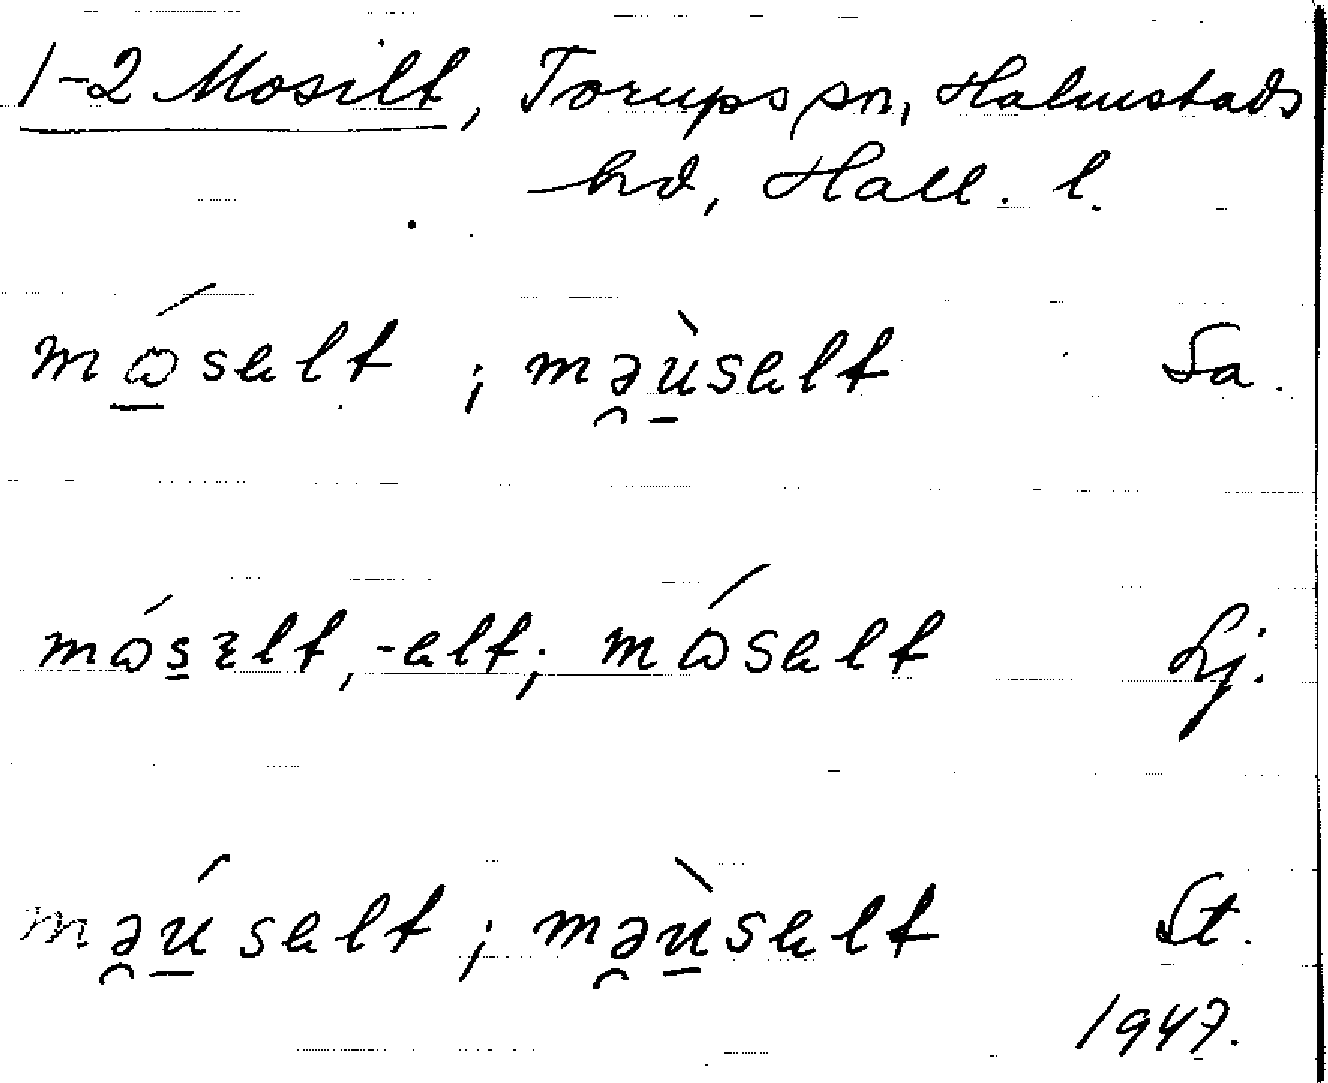 1-2 Mosilt, Torups sn, Halmstads
hd, Hall. l.
mɷ̲́sɐlt ; mə̯ù̲sɐlt Sa.
mɷ́s̲ɛlt, -ɐlt; mɷ́sɐlt Lj.
mə̯ú̲sɐlt ; mə̯ù̲sɐlt St.
1947.